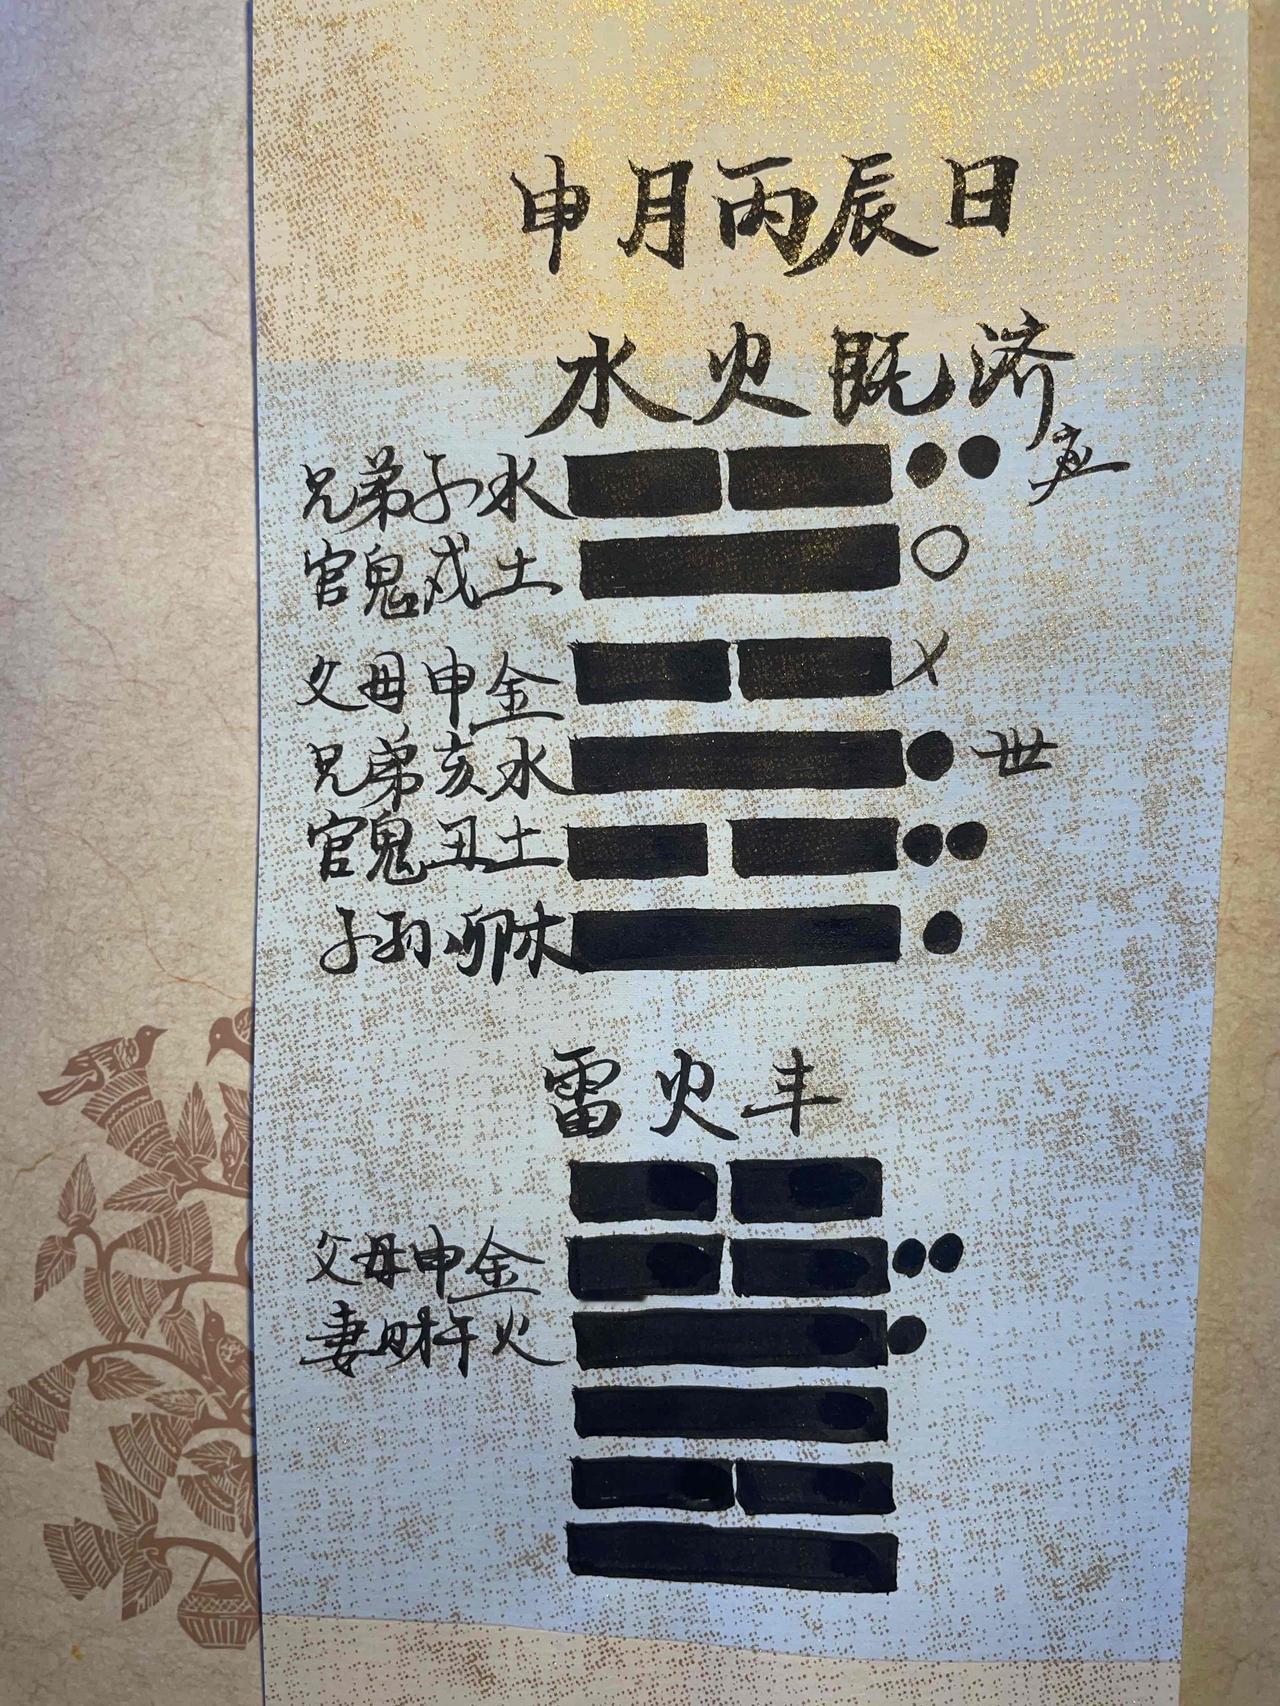 申月丙辰日
水火既济
兄弟子水 应
官鬼戌土 ○
父母申金 X
兄弟亥水 世
官鬼丑土
子孙卯木
雷火丰
父母申金
妻财午火